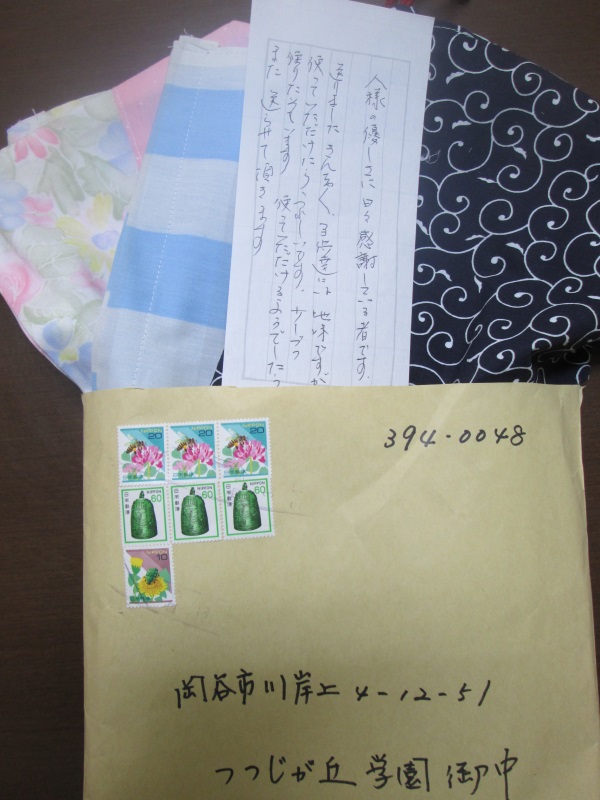 人様の優しさに日々感謝している者です。
送りましたきんちゃく、子供達には地味ですが
使っていただけたらうれしいです。少しづつ
作りためています 使っていただけるようでしたら
また 送らせて頂きます
394-0048
20
20
20
60
日本郵便
NIPPON
60
日本郵便
NIPPON
60
日本郵便
NIPPON
10
岡谷市川岸上4-12-51
つつじが丘学園 御中